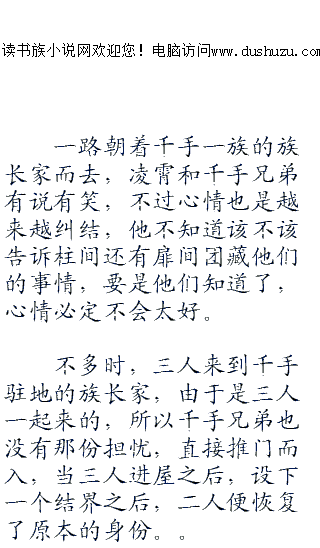 读书族小说网欢迎您！电脑访问www.dushuzu.com
一路朝着千手一族的族
长家而去，凌霄和千手兄弟
有说有笑，不过心情也是越
来越纠结，他不知道该不该
告诉柱间还有扉间团藏他们
的事情，要是他们知道了，
心情必定不会太好。
不多时，三人来到千手
驻地的族长家，由于是三人
一起来的，所以千手兄弟也
没有那份担忧，直接推门而
入，当三人进屋之后，设下
一个结界之后，二人便恢复
了原本的身份。。